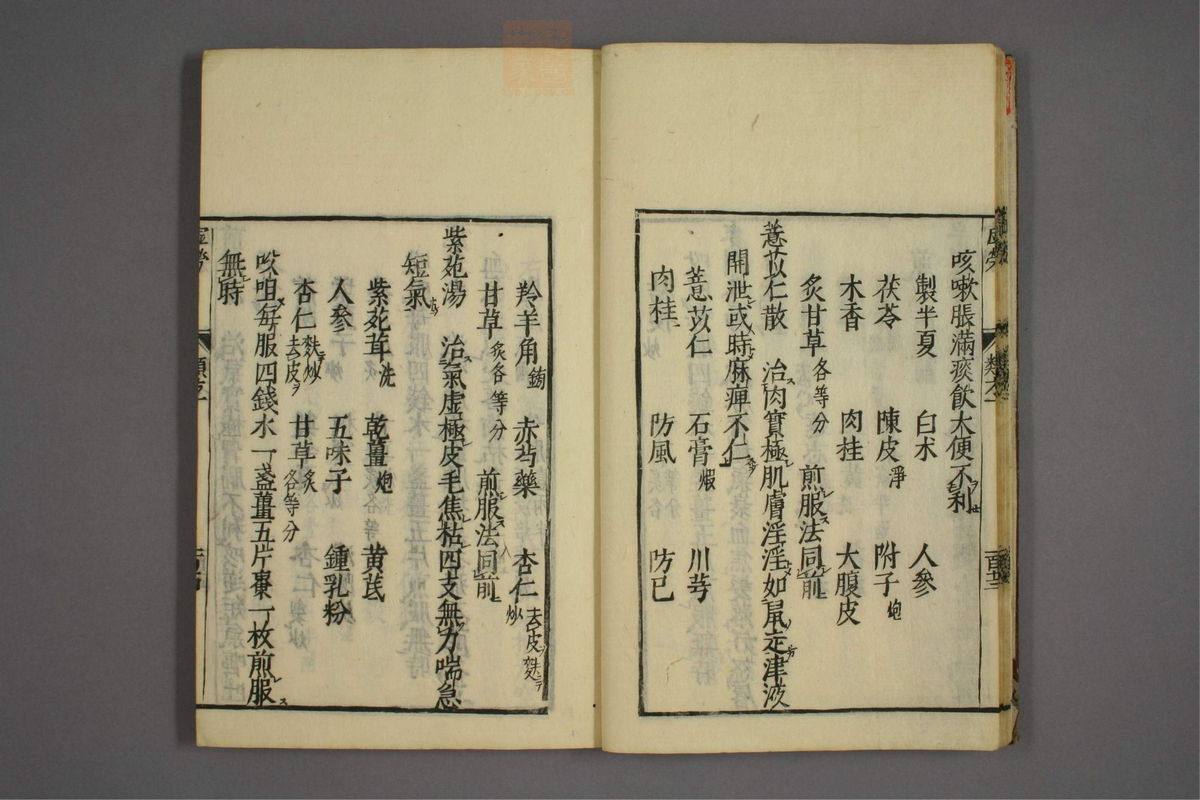 咳嗽脹滿痰飲大便不利
製半夏　白朮　人參
茯苓　陳皮淨　附子炮
木香　肉桂　大腹皮
炙甘草各等分　煎服法同前
薏苡仁散　治肉實極肌膚淫淫如鼠走津液
開泄或時麻痺不仁
薏苡仁　石膏煆　川芎
肉桂　防風　防己
羚羊角鎊　赤芍藥　杏仁去皮麩炒
甘草炙各等分　煎服法同前
紫菀湯　治氣虛極皮毛焦枯四支無力喘急
短氣
紫菀茸洗　乾薑炮　黃芪
人參　五味子　鍾乳粉
杏仁麩炒去皮　甘草炙各等分
㕮咀每服四錢水一盞薑五片棗一枚煎服
無時